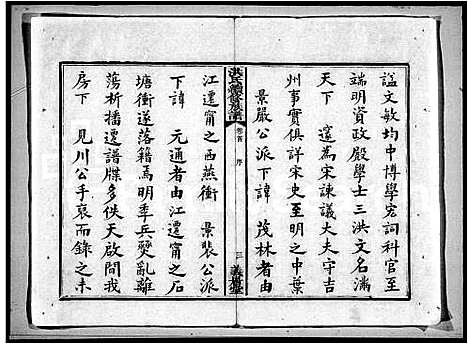 謚文敏均中博學宏詞科官至
端明資政殿學士三洪文名滿
天下 邃為宋諫議大夫守吉
州事實俱詳宋史至明之中葉
景嚴公派下諱 茂林者由
洪氏續修族譜
卷首 序
三
江遷甯之西燕衝 景裴公派
下諱 元通者由江遷甯之石
塘衝遂落籍焉明季兵燹亂離
蕩析播遷譜牒多佚天啟間我
房下 見川公手裒而錄之未